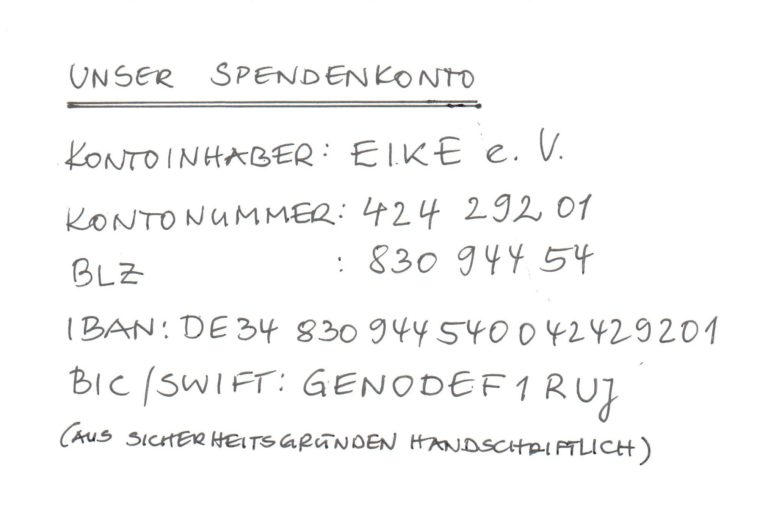 UNSER SPENDENKONTO
KONTOINHABER: EIKE e. V.
KONTONUMMER: 424 292 01
BLZ : 830 944 54
IBAN: DE34 830 944 540 0 42429201
BIC/SWIFT: GENODEF1RUJ
(AUS SICHERHEITSGRÜNDEN HANDSCHRIFTLICH)